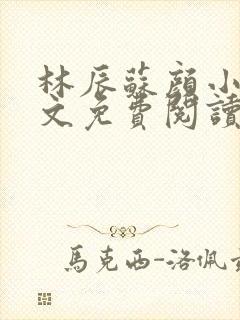 林辰蘇顔小
文免費閱讀
馬克西-洛佩